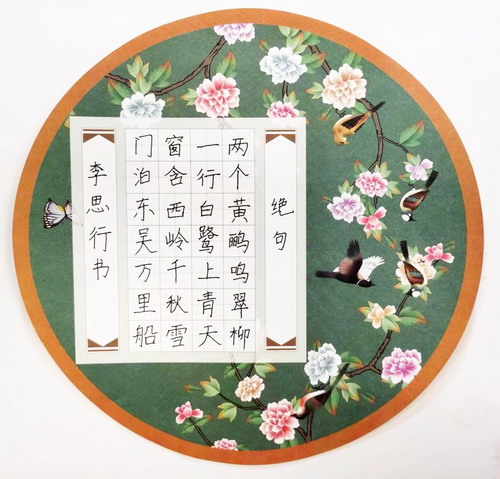 绝句
两个黄鹂鸣翠柳
一行白鹭上青天
窗含西岭千秋雪
门泊东吴万里船
李思行书